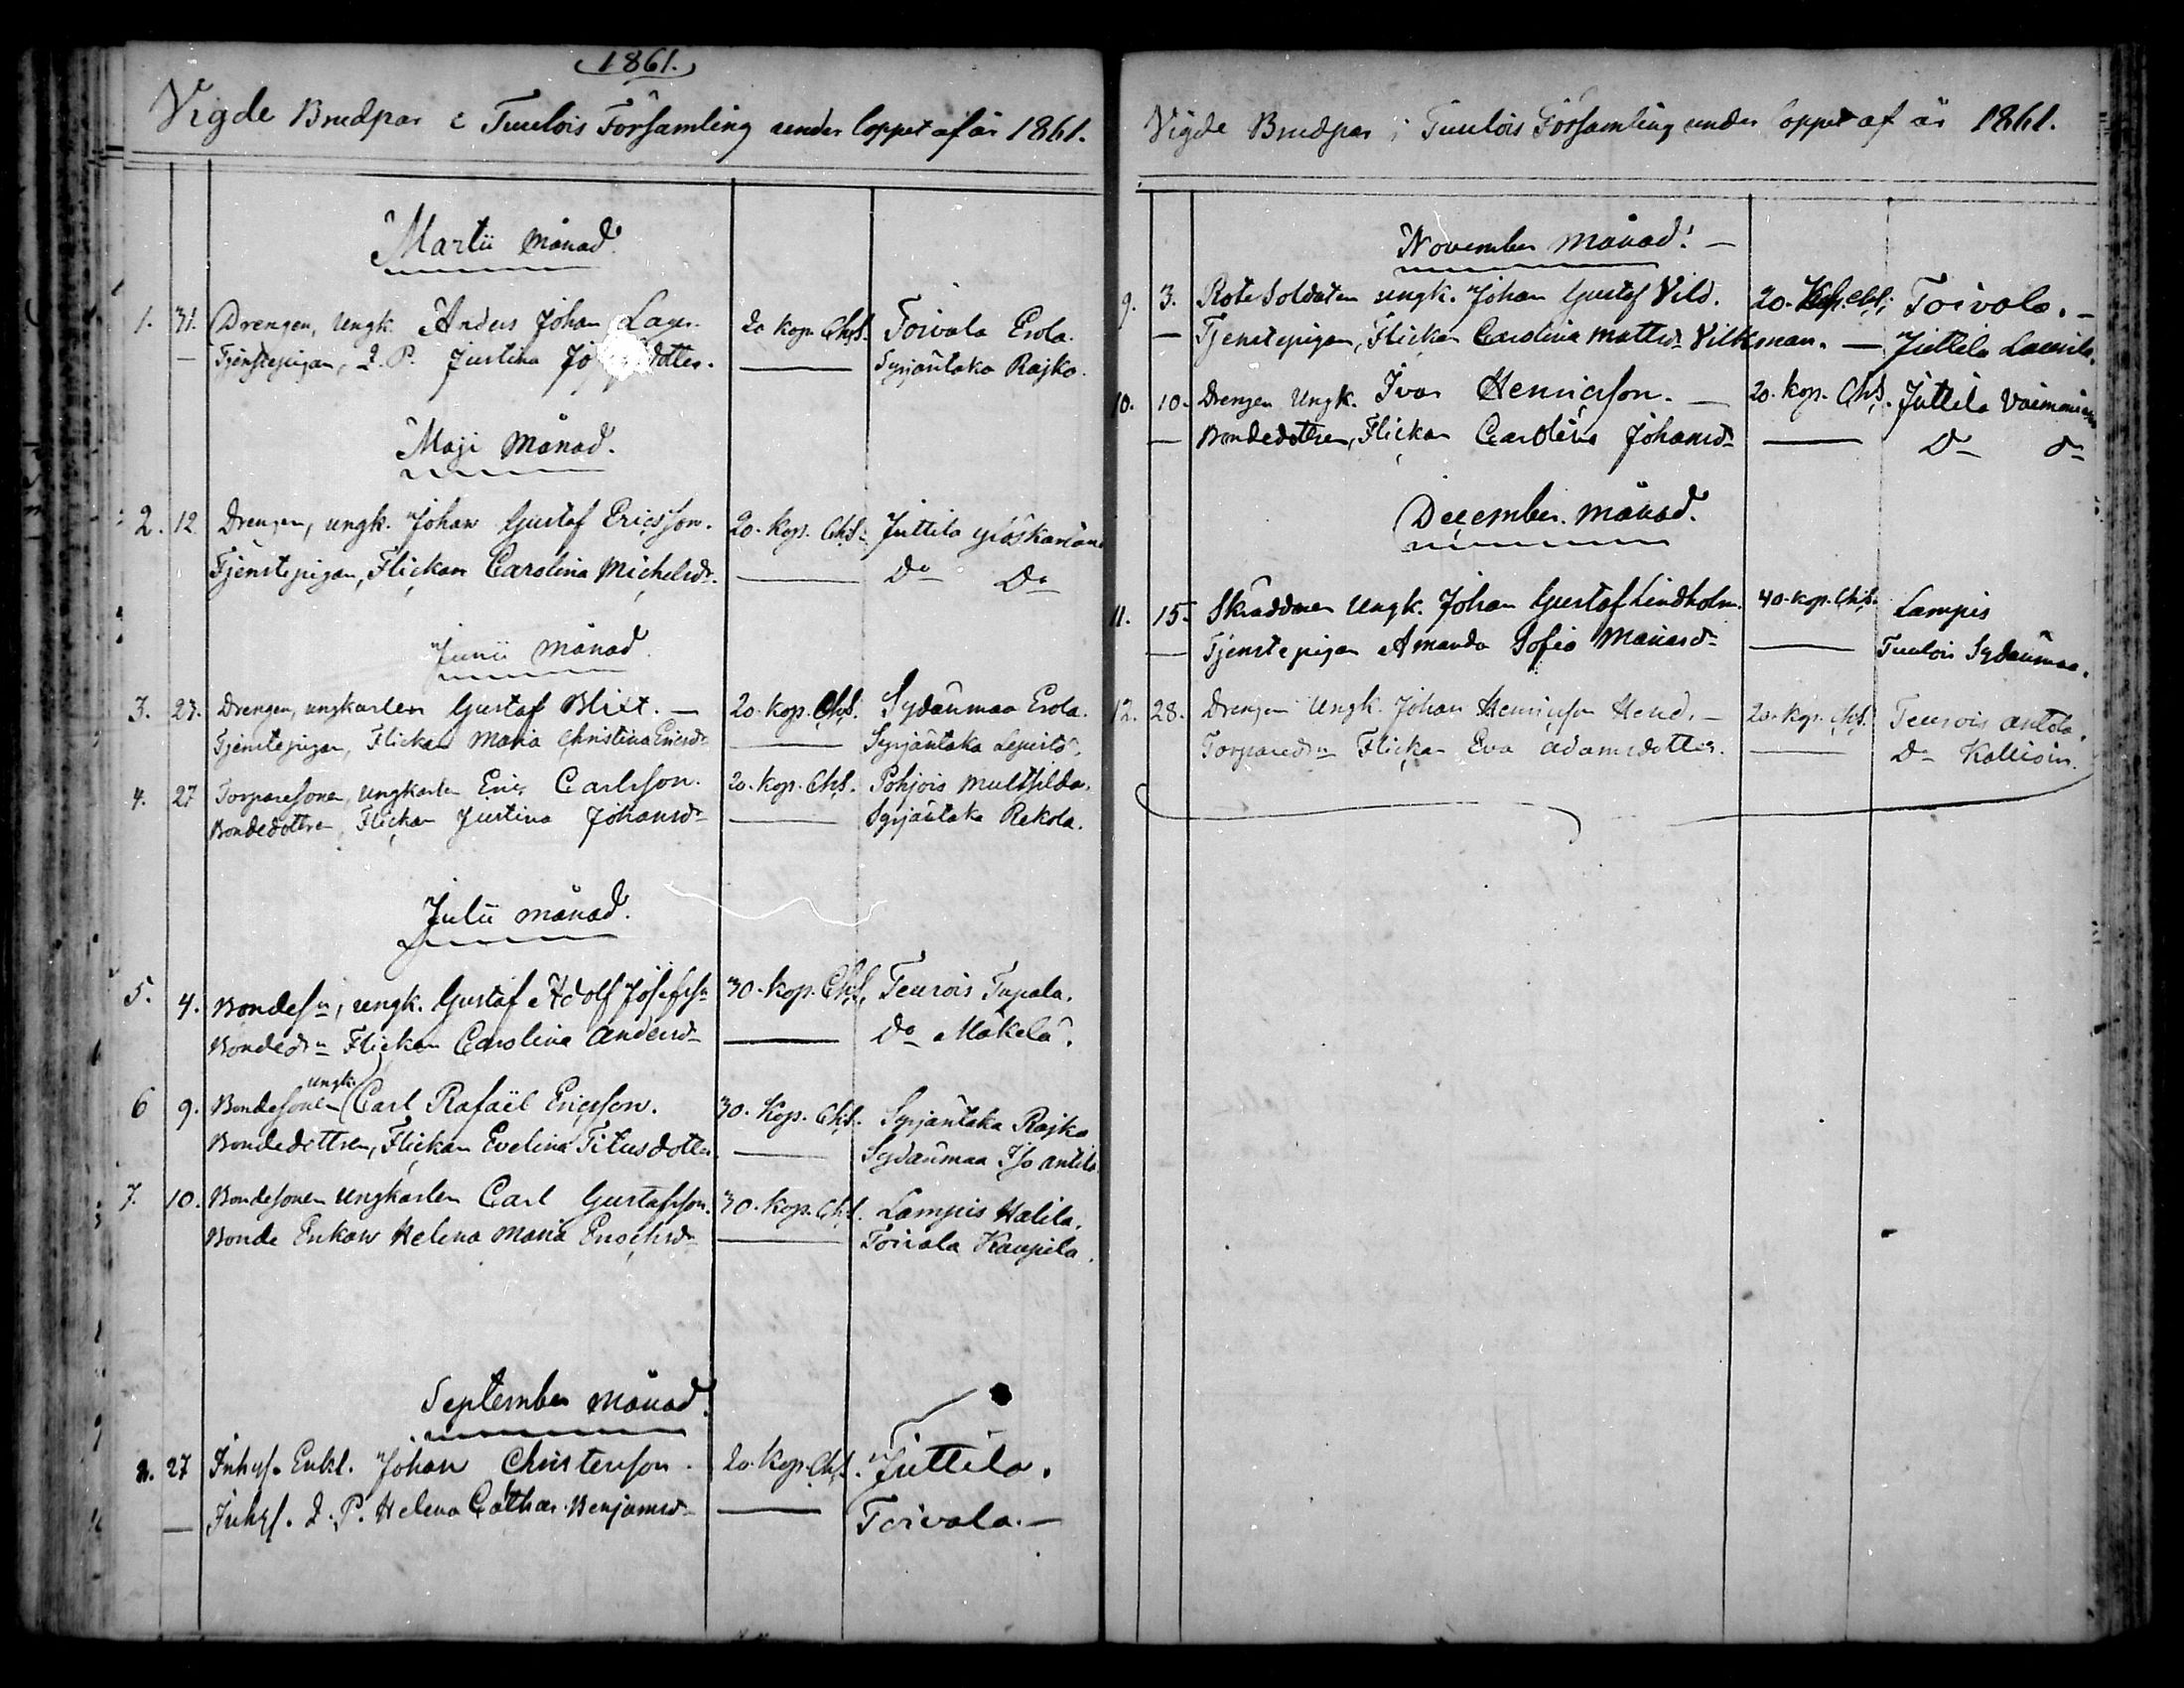 1861.
Vigde Brudpar i Tuulois Församling under loppet af år 1861.
Martii månad.
1. 31. Drengen, Ungk. Anders Johan Lager. 20 Kop. Ch.S. Toivala Erola.
— Tjenstepigan, Q. P. Justina dotter. — Syrjäntaka Rajko.
Maji Månad.
2. 12 Drengen, ungk. Johan Gustaf Ericsson. 20. Kop. Ch.S. Juttila
Tjenstepigan, Flickan Carolina Michelsdr. — Do Do
Junii månad.
3. 23. Drengen, ungkarlen Gustaf Blixt. — 20. Kop. Ch.S. Sydänmaa Erola.
Tjenstepigan, Flickan Maria Christina Ericsdr — Syrjäntaka
4. 27 Torparesonen, ungkarlen Eric Carlsson. 20. Kop. Ch.S. Pohjois Multsilda.
Bondedottren, Flickan Justina Johansdr — Syrjäntaka Rekola.
Julii månad.
5. 4. Bondesn, ungk. Gustaf Adolf Josefssn 30. Kop. Ch.S. Teurois Tupala.
Bondedrn Flickan Carolina Andersdr — Do Mäkelä.
6 9. Bondesonen ungk. Carl Rafaël Ericsson. 30. Kop. Ch.S. Syrjäntaka Rajko
Bondedottren, Flickan Evelina Titusdotter — Sydänmaa Iso Antila.
7. 10. Bondesonen Ungkarlen Carl Gustafsson. 30. Kop. Ch.S. Lampis Halila.
Bonde Enkan Helena Maria Enochsdr — Toivala Kaupila.
September månad.
8. 27 Inhys. Enkl. Johan Christersson. 20. Kop. Ch.S. Juttila.
— Inhys. Q. P. Helena Cathar. Benjamsdr — Toivala. —
Vigde Brudpar i Tuulois Församling under loppet af år 1861.
November månad. —
9. 3. Rote Soldaten ungk. Johan Gustaf Vild. 20. Kop. Ch.S. Toivola. —
— Tjenstepigan, Flickan Carolina Mattsdr Vilkman. — Juttila Laurila.
10. 10. Drengen Ungk. Ivar Henricsson. — 20. Kop. Ch.S. Juttila
— Bondedottren, Flickan Carolina Johansdr — Do do
December månad.
11. 15. Skräddaren Ungk. Johan Gustaf Lindholm. 40. Kop. Ch.S. Lampis
— Tjenstepigan Amanda Sofia Manasdr — Tuulois Sydänmaa.
12. 28. Drengen Ungk. Johan Henricsson Hend. — 20. Kop. Ch.S. Teurois Antola.
Torparedrn Flickan Eva Adamsdotter. — Do Kallioin.